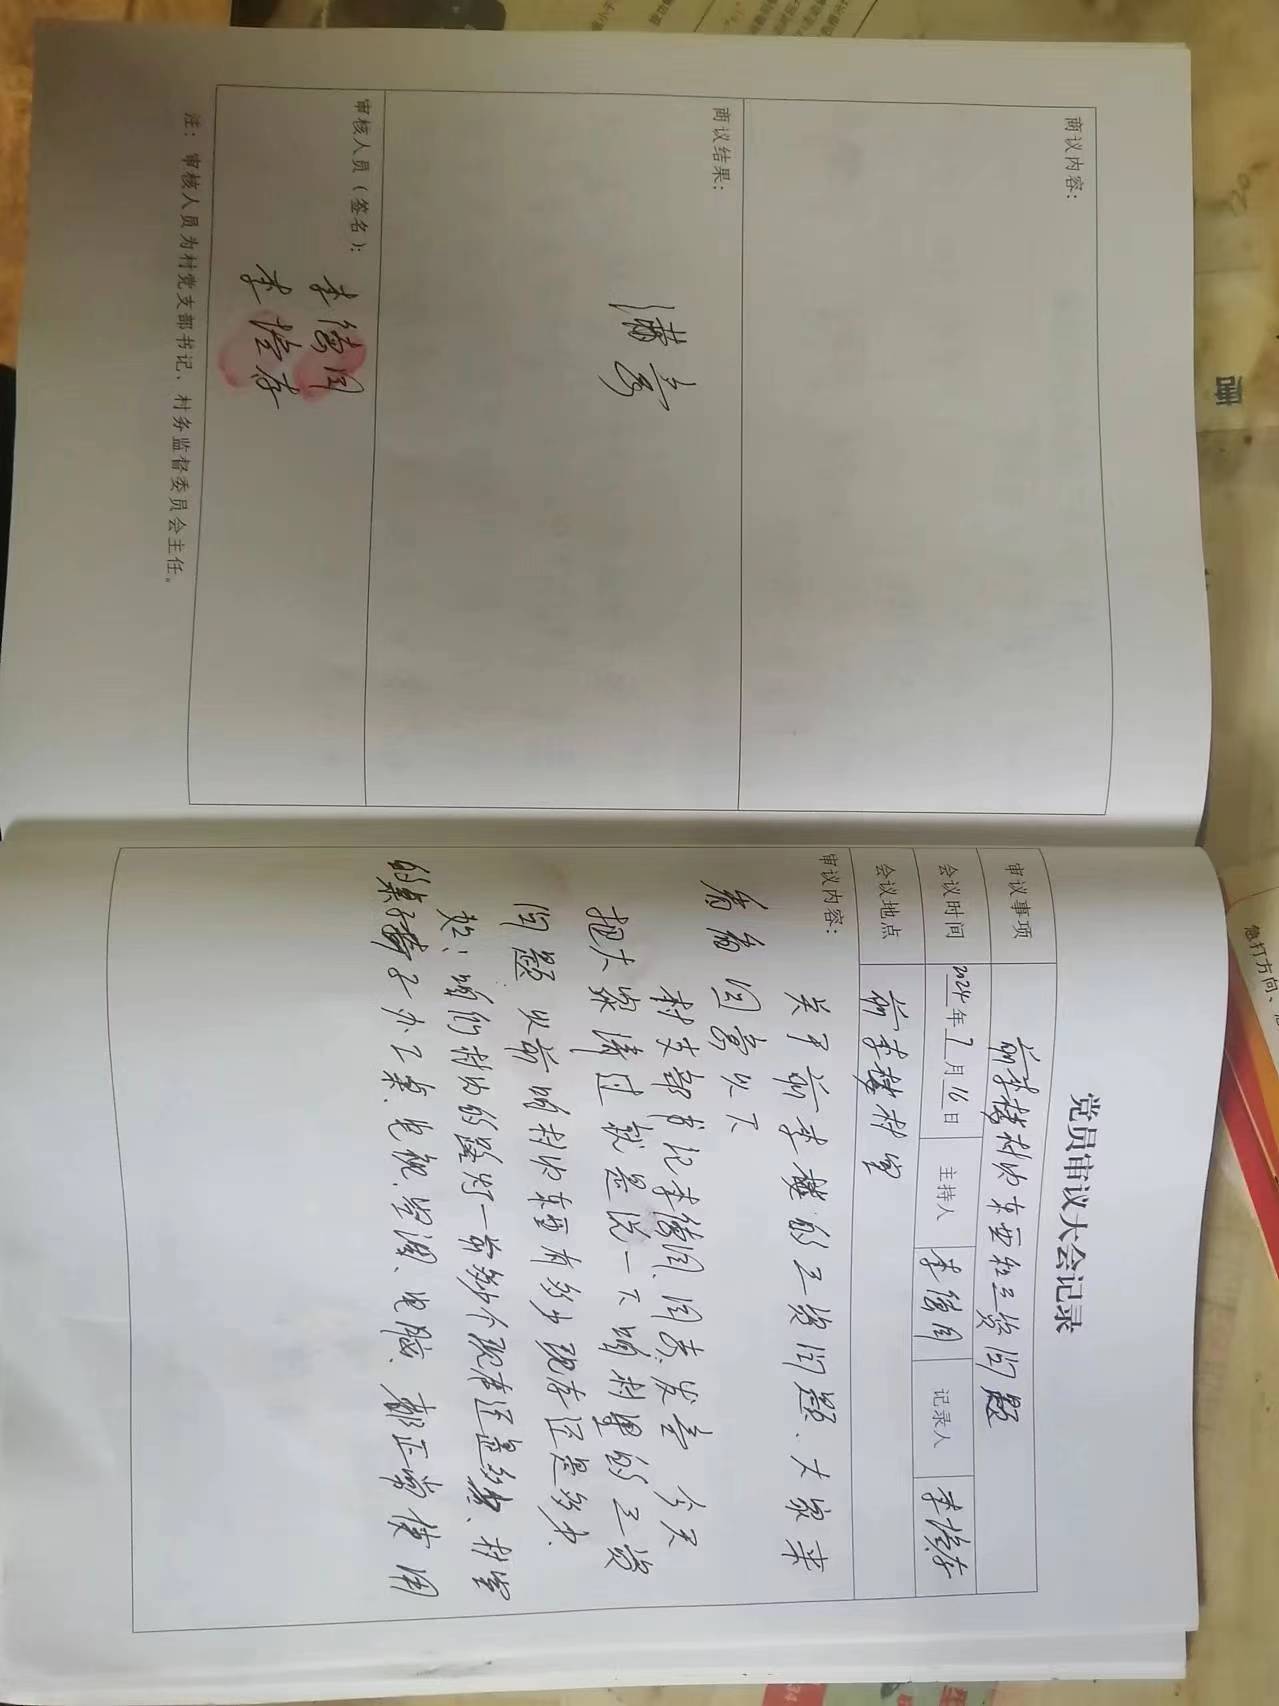 商议内容:
商议结果:
满意
审核人员(签名):
李
李
注:审核人员为村党支部书记、村务监督委员会主任。
党员审议大会记录
审议事项
前李楼村的东西和三资问题
会议时间
2024年7月16日
主持人
李
记录人
李
会议地点
前李楼村室
审议内容:
关于前李楼的三资问题、大家来
看看 同意以下
村支部书记李 同志发言 今天
把大家清过就是说一下咱村里的三资
问题 以前咱村的东西有多少现在还是多少
咱们村的路灯一前多少个现在还是多少、村室
的桌子椅子办工桌、电视、空调、电脑、都正常使用